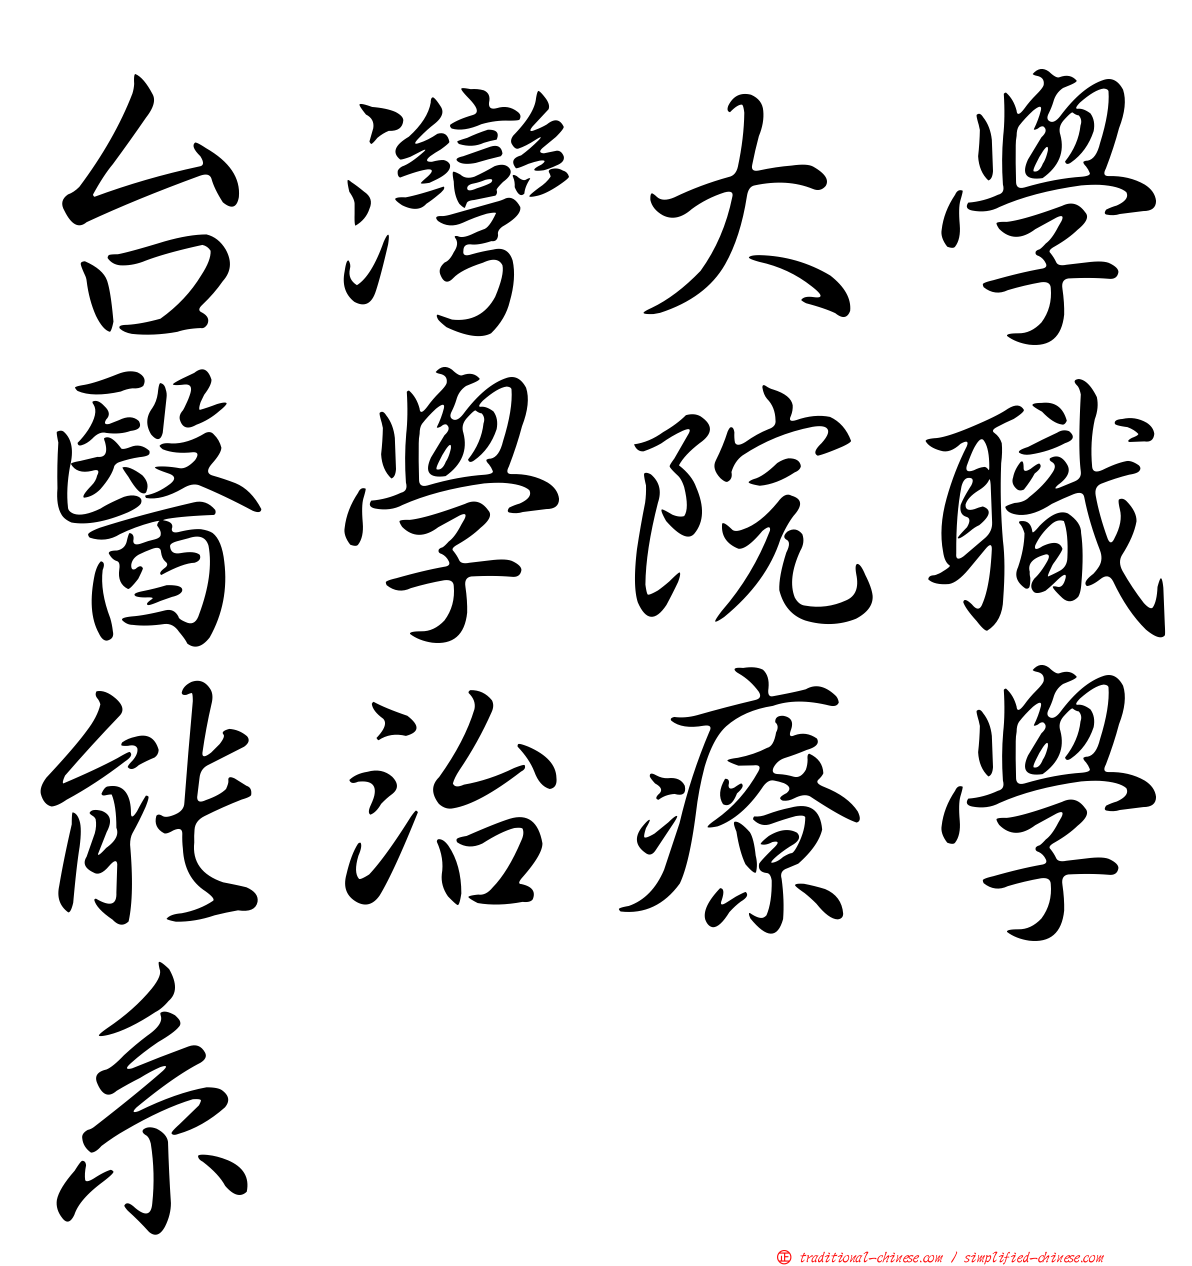 台灣大學
醫學院職
能治療學
系
正 traditional-chinese.com / simplified-chinese.com